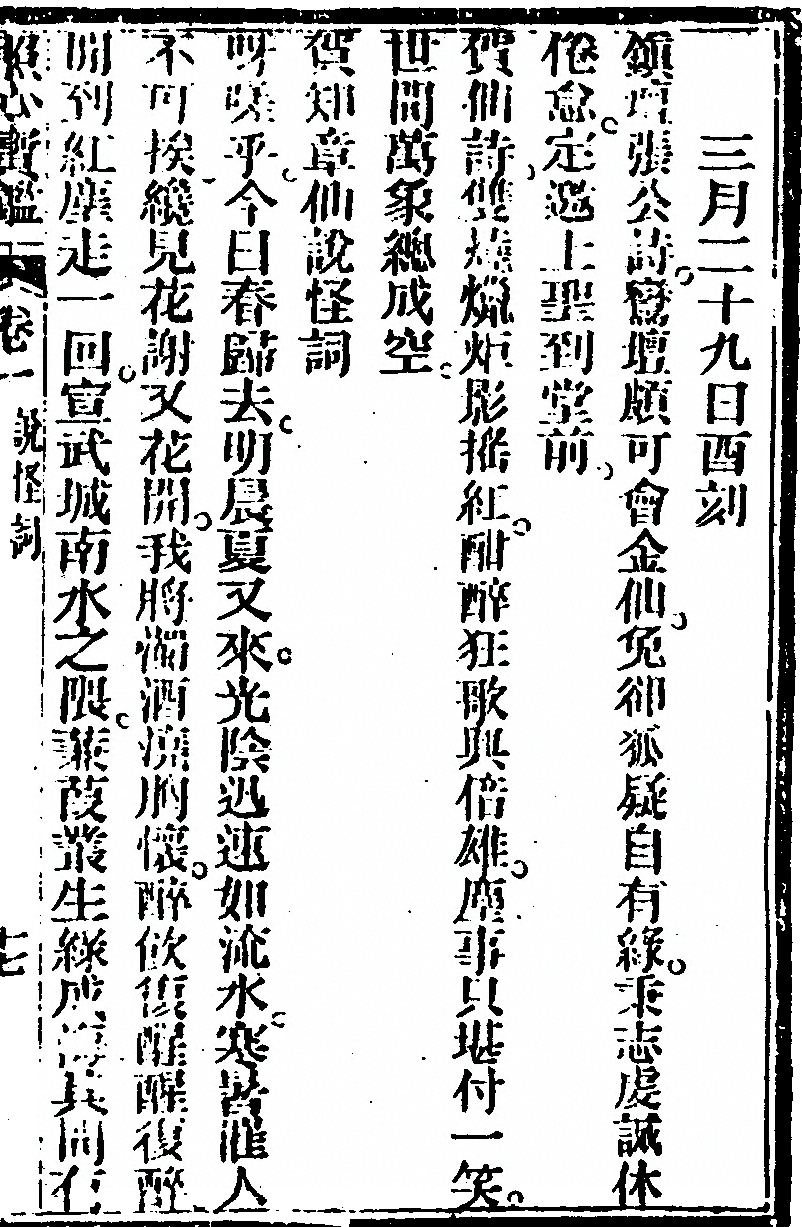 三月二十九日酉刻
鎮壇張公詩鸞壇頗可會金仙免卻狐疑自有緣秉志虔誠休
倦怠定邀上聖到堂前
賀仙詩雙燒爥炬影搖紅酣醉狂歌興倍雄塵事只堪付一笑
世間萬象總成空
賀知章仙說怪詞
呀嗟乎今日春歸去明晨夏又來光陰迅速如流水寒暑催人
不可挨纔見花謝又花開我將濁酒澆胸懷醉欲復醒醒復醉
閒到紅塵走一回宣武城南水之隈蒹葭叢生綠成海其間有
照心寶鑑 卷一 說怪詞 十七